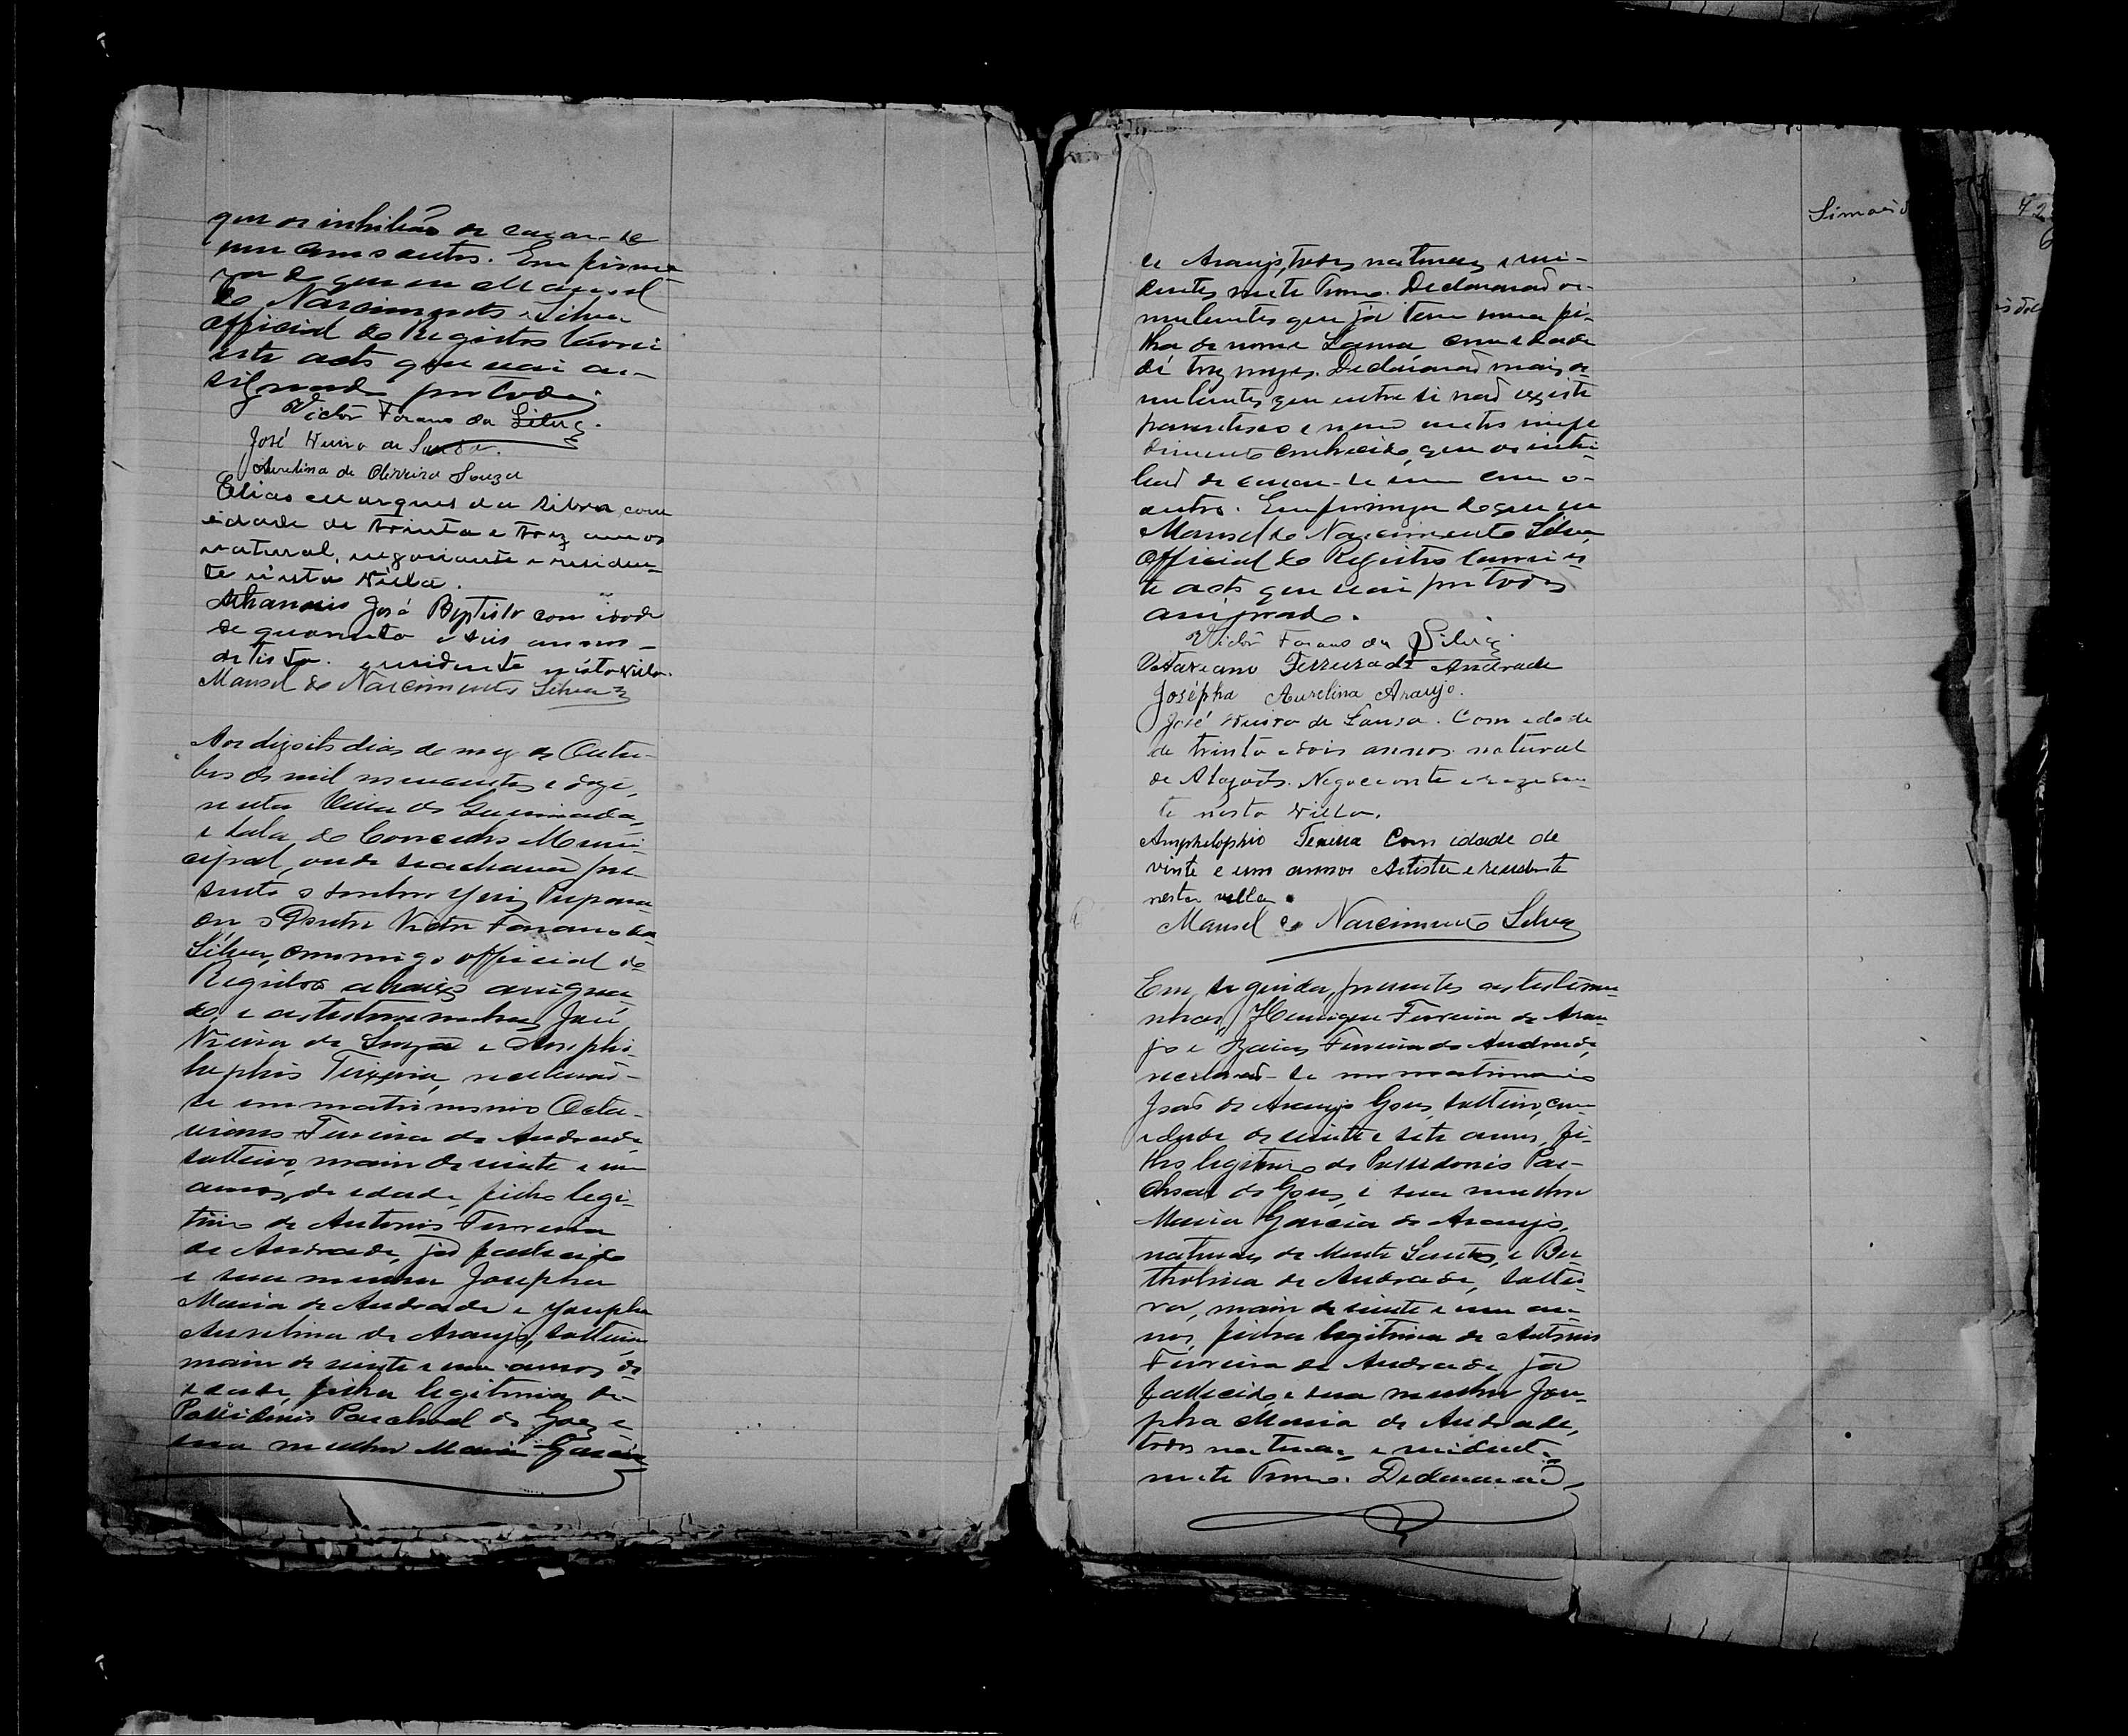 que os inhibão de casar-se
um com o outro. Em firme-
za de que eu Manoel
do Nascimento Silva
official do Registro lavrei
este acto que vai as-
signado por todos
Victor Forano da Silva.
José Vieira de Souza.
Aurelina de Oliveira Souza
Elias Marques da Silva com
idade de trinta e trez annos
natural, negociante e residen-
te nesta Villa.
Athanasio José Baptista com idade
de quarenta e seis annos -
artista. e residente nesta Villa.
Manoel do Nascimento Silva
Aos dizoito dias do mez de Outu-
bro de mil novecentos e doze,
nesta Villa de Queimadas,
e sala do Concelho Muni-
cipal, onde se achava pre-
sente o senhor Juiz Prepara-
dor, o Doutor Victor Forano da
Silva, commigo official do
Registro abaixo assigna-
do, e as testemunhas José
Vieira de Souza e Amphi-
lophio Teixeira, receberão-
se em matrimonio Octa-
viano Ferreira de Andrade
solteiro, maior de vinte e um
annos de edade, filho legi-
timo de Antonio Ferreira
de Andrade, já fallecido
e sua mulher Josepha
Maria de Andrade e Josepha
Aurelina de Araujo, solteira
maior de vinte e um annos de
edade, filha legitima de
Possidonio Paschoal de Goes e
sua mulher Maria Garcia
Simões
de Araujo, todos naturaes e resi-
dentes neste Termo. Declararão os
nubentes que já tem uma fi-
lha de nome Laura com edade
de trez mezes. Declararão mais os
nubentes que entre si não existe
parentesco e nem outro impe-
dimento conhecido, que os inhi-
bão de casar-se um com o
outro. Em firmeza de que eu
Manoel do Nascimento Silva
Official do Registro lavrei es-
te acto que vai por todos
assignado.
Victor Forano da Silva
Octaviano Ferreira de Andrade
Josépha Aurelina Araujo.
José Vieira de Sousa. Com edade
de trinta e dois annos natural
de Alagoas. Negociante e reziden-
te nesta Villa.
Amphilophio Teixeira Com idade de
vinte e um annos Artista e residente
nesta villa.
Manoel do Nascimento Silva
Em seguida, presentes as testemu-
nhas, Henrique Ferreira de Arau-
jo e Izaias Ferreira de Andrade,
receberão-se em matrimonio
João de Araujo Goes, solteiro, com
edade de vinte e sete annos, fi-
lho legitimo de Possidonio Pas-
choal de Goes, e sua mulher
Maria Garcia de Araujo,
naturaes de Monte Santo, e Ber-
tholina de Andrade, soltei-
ra, maior de vinte e um an-
nos, filha legitima de Antonio
Ferreira de Andrade já
fallecido, e sua mulher Jose-
pha Maria de Andrade,
todos naturaes e residentes
neste Termo. Declararão